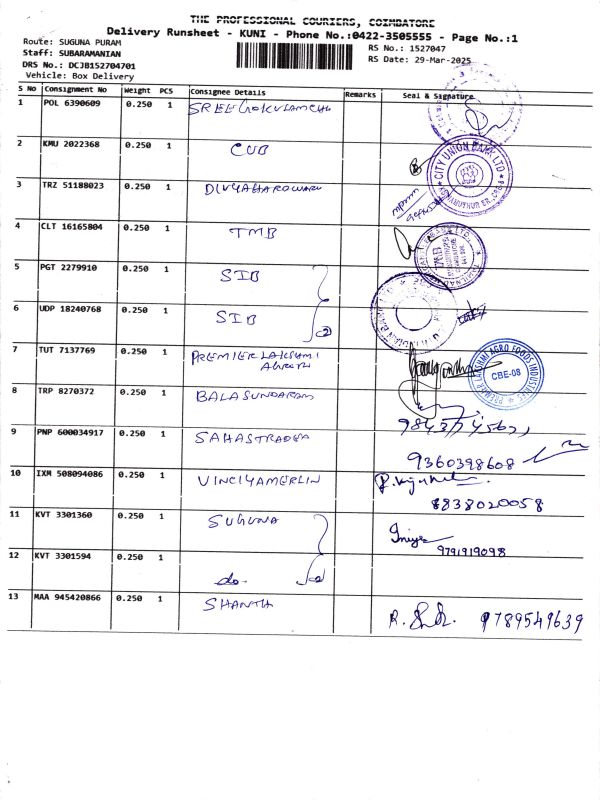 THE PROFESSIONAL COURIERS, COIMBATORE
Delivery Runsheet - KUNI - Phone No.:0422-3505555 - Page No.:1
Route: SUGUNA PURAM
RS No.: 1527047
Staff: SUBARAMANIAN
RS Date: 29-Mar-2025
DRS No.: DCJB152704701
Vehicle: Box Delivery
S No Consignment No Weight PCS Consignee Details Remarks Seal & Signature
1 POL 6390609 0.250 1
2 KMU 2022368 0.250 1 CUB
CITY UNION BANK LTD
3 TRZ 51188023 0.250 1 DIVYAHARDWARE
4 CLT 16165804 0.250 1 TMB
5 PGT 2279910 0.250 1 SIB
6 UDP 18240768 0.250 1 SIB
7 TUT 7137769 0.250 1 PREMIER LAKSHMI
PREMIER LAKSHMI AGRO FOODS INDUSTRIES
CBE-08
8 TRP 8270372 0.250 1 BALASUNDARAM
9 PNP 600034917 0.250 1
9360398608
10 IXM 508094086 0.250 1 VINCIYAMERLIN
8838020058
11 KVT 3301360 0.250 1 SUGUNA
9791919098
12 KVT 3301594 0.250 1 do-
13 MAA 945420866 0.250 1 SHANTH
9789549639